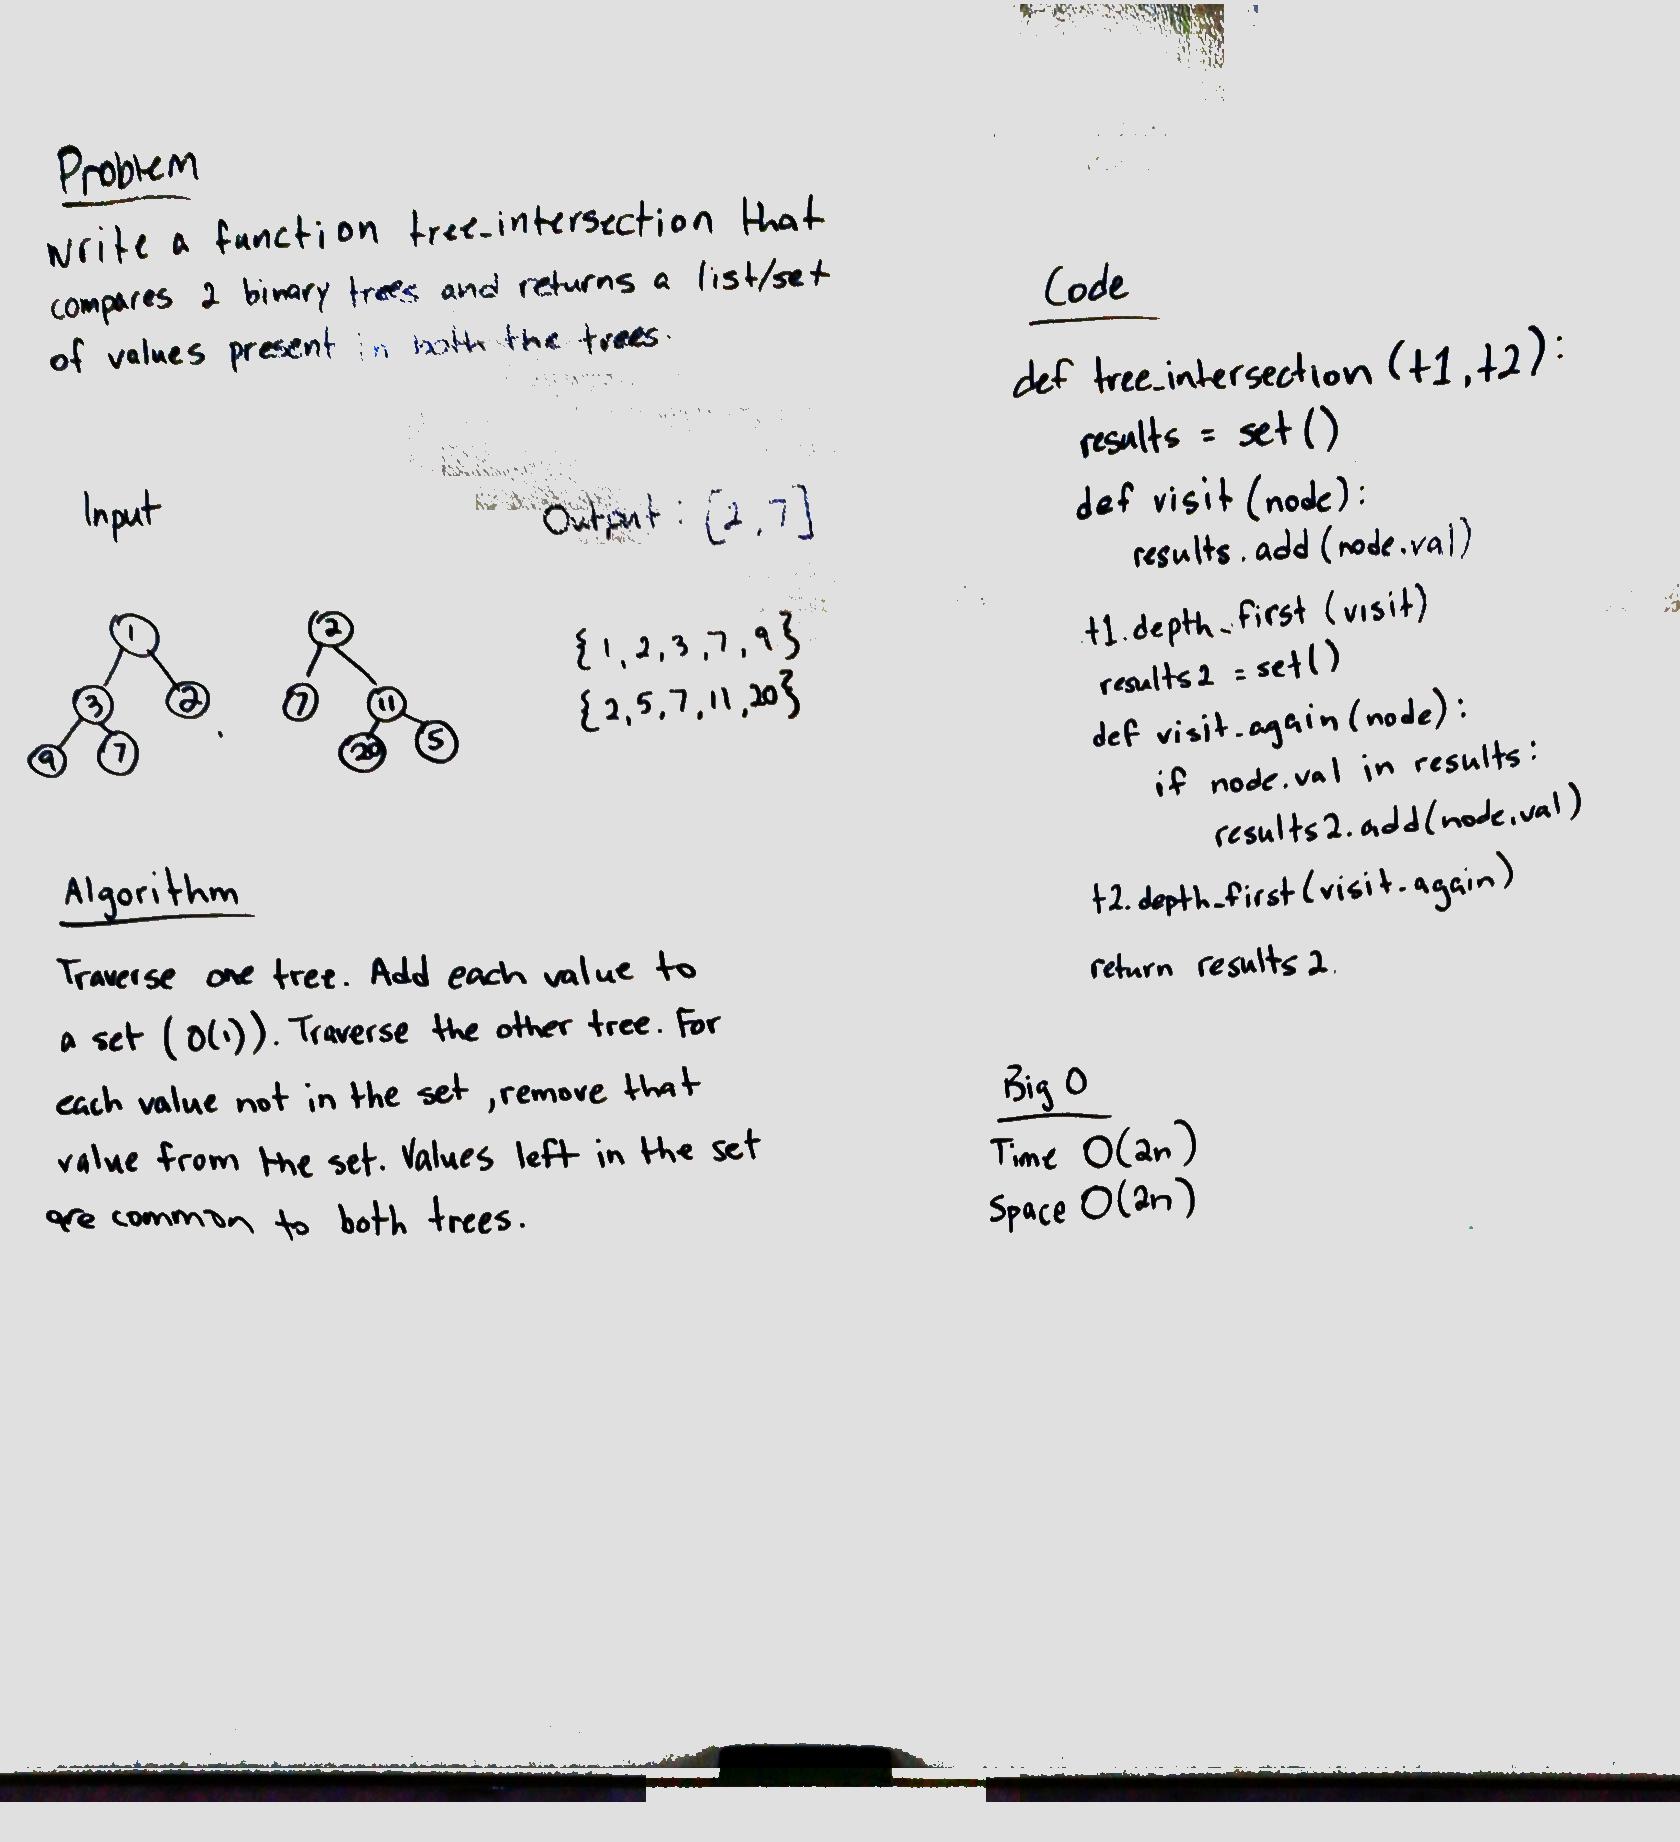 Problem
Write a function tree_intersection that
compares 2 binary trees and returns a list/set
of values present in both the trees.
Input
Output : [2,7]
1
3 2
9 7
2
7 11
20 5
{1,2,3,7,9}
{2,5,7,11,20}
Algorithm
Traverse one tree. Add each value to
a set (O(1)). Traverse the other tree. For
each value not in the set, remove that
value from the set. Values left in the set
are common to both trees.
Code
def tree_intersection (t1,t2):
results = set()
def visit (node):
results.add(node.val)
t1.depth_first (visit)
results2 = set()
def visit_again(node):
if node.val in results:
results2.add(node.val)
t2.depth_first(visit_again)
return results2.
Big O
Time O(2n)
Space O(2n)